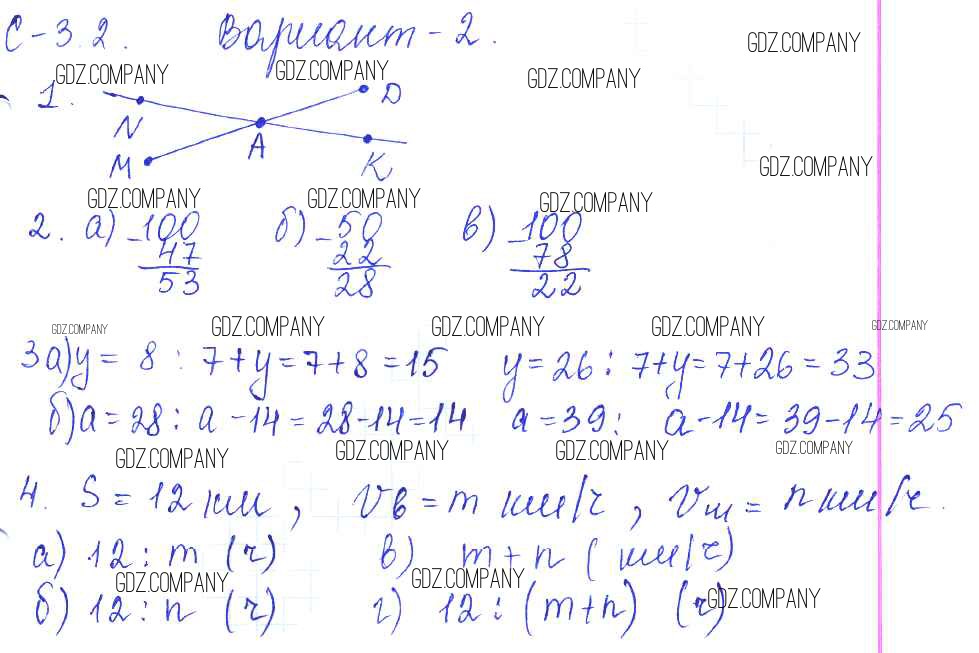 С-3.2. Вариант-2.
GDZ.COMPANY GDZ.COMPANY GDZ.COMPANY GDZ.COMPANY
1. N M A D K
GDZ.COMPANY
GDZ.COMPANY GDZ.COMPANY GDZ.COMPANY
2. а) -100 б) -50 в) -100
47 22 78
53 28 22
GDZ.COMPANY GDZ.COMPANY GDZ.COMPANY GDZ.COMPANY GDZ.COMPANY
3а) y = 8 : 7+y=7+8=15 y=26: 7+y=7+26=33
б) a=28: a-14=28-14=14 a=39: a-14=39-14=25
GDZ.COMPANY GDZ.COMPANY GDZ.COMPANY GDZ.COMPANY
4. S=12 км, Vв=m км/ч, Vм=n км/ч.
а) 12:m (ч) в) m+n (км/ч)
GDZ.COMPANY GDZ.COMPANY GDZ.COMPANY
б) 12:n (ч) г) 12:(m+n) (ч)